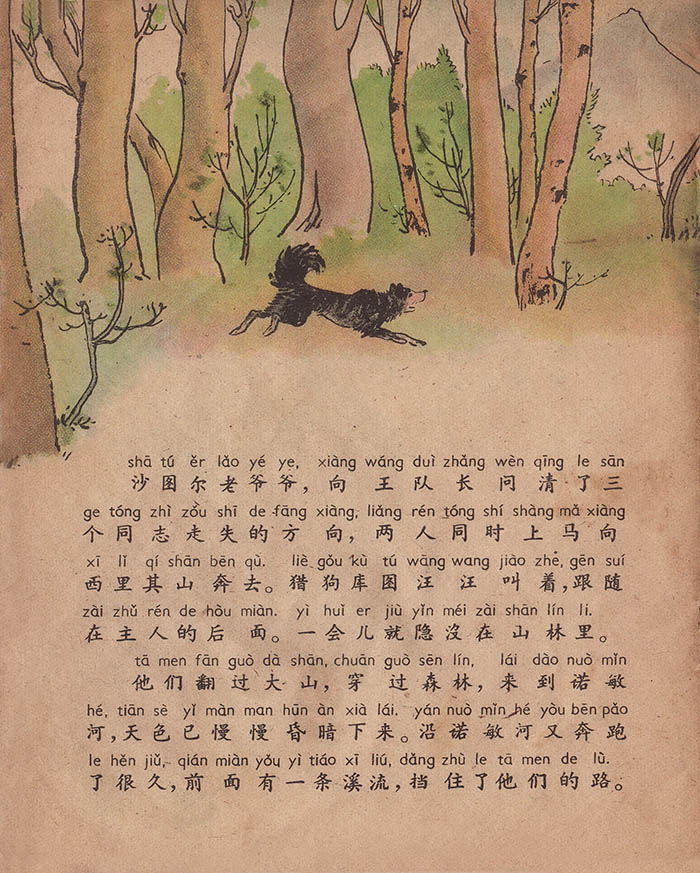 shā tú ěr lǎo yé ye, xiàng wáng duì zhǎng wèn qīng le sān
沙图尔老爷爷，向王队长问清了三
ge tóng zhì zǒu shī de fāng xiàng, liǎng rén tóng shí shàng mǎ xiàng
个同志走失的方向，两人同时上马向
xī lǐ qí shān bēn qù. liè gǒu kù tú wāng wang jiào zhe, gēn suí
西里其山奔去。猎狗库图汪汪叫着，跟随
zài zhǔ rén de hòu miàn. yì huǐ er jiù yǐn méi zài shān lín li.
在主人的后面。一会儿就隐没在山林里。
tā men fān guò dà shān, chuān guò sēn lín, lái dào nuò mǐn
他们翻过大山，穿过森林，来到诺敏
hé, tiān sè yǐ màn man hūn àn xià lái. yán nuò mǐn hé yòu bēn pǎo
河，天色已慢慢昏暗下来。沿诺敏河又奔跑
le hěn jiǔ, qián miàn yǒu yì tiáo xī liú, dǎng zhù le tā men de lù.
了很久，前面有一条溪流，挡住了他们的路。